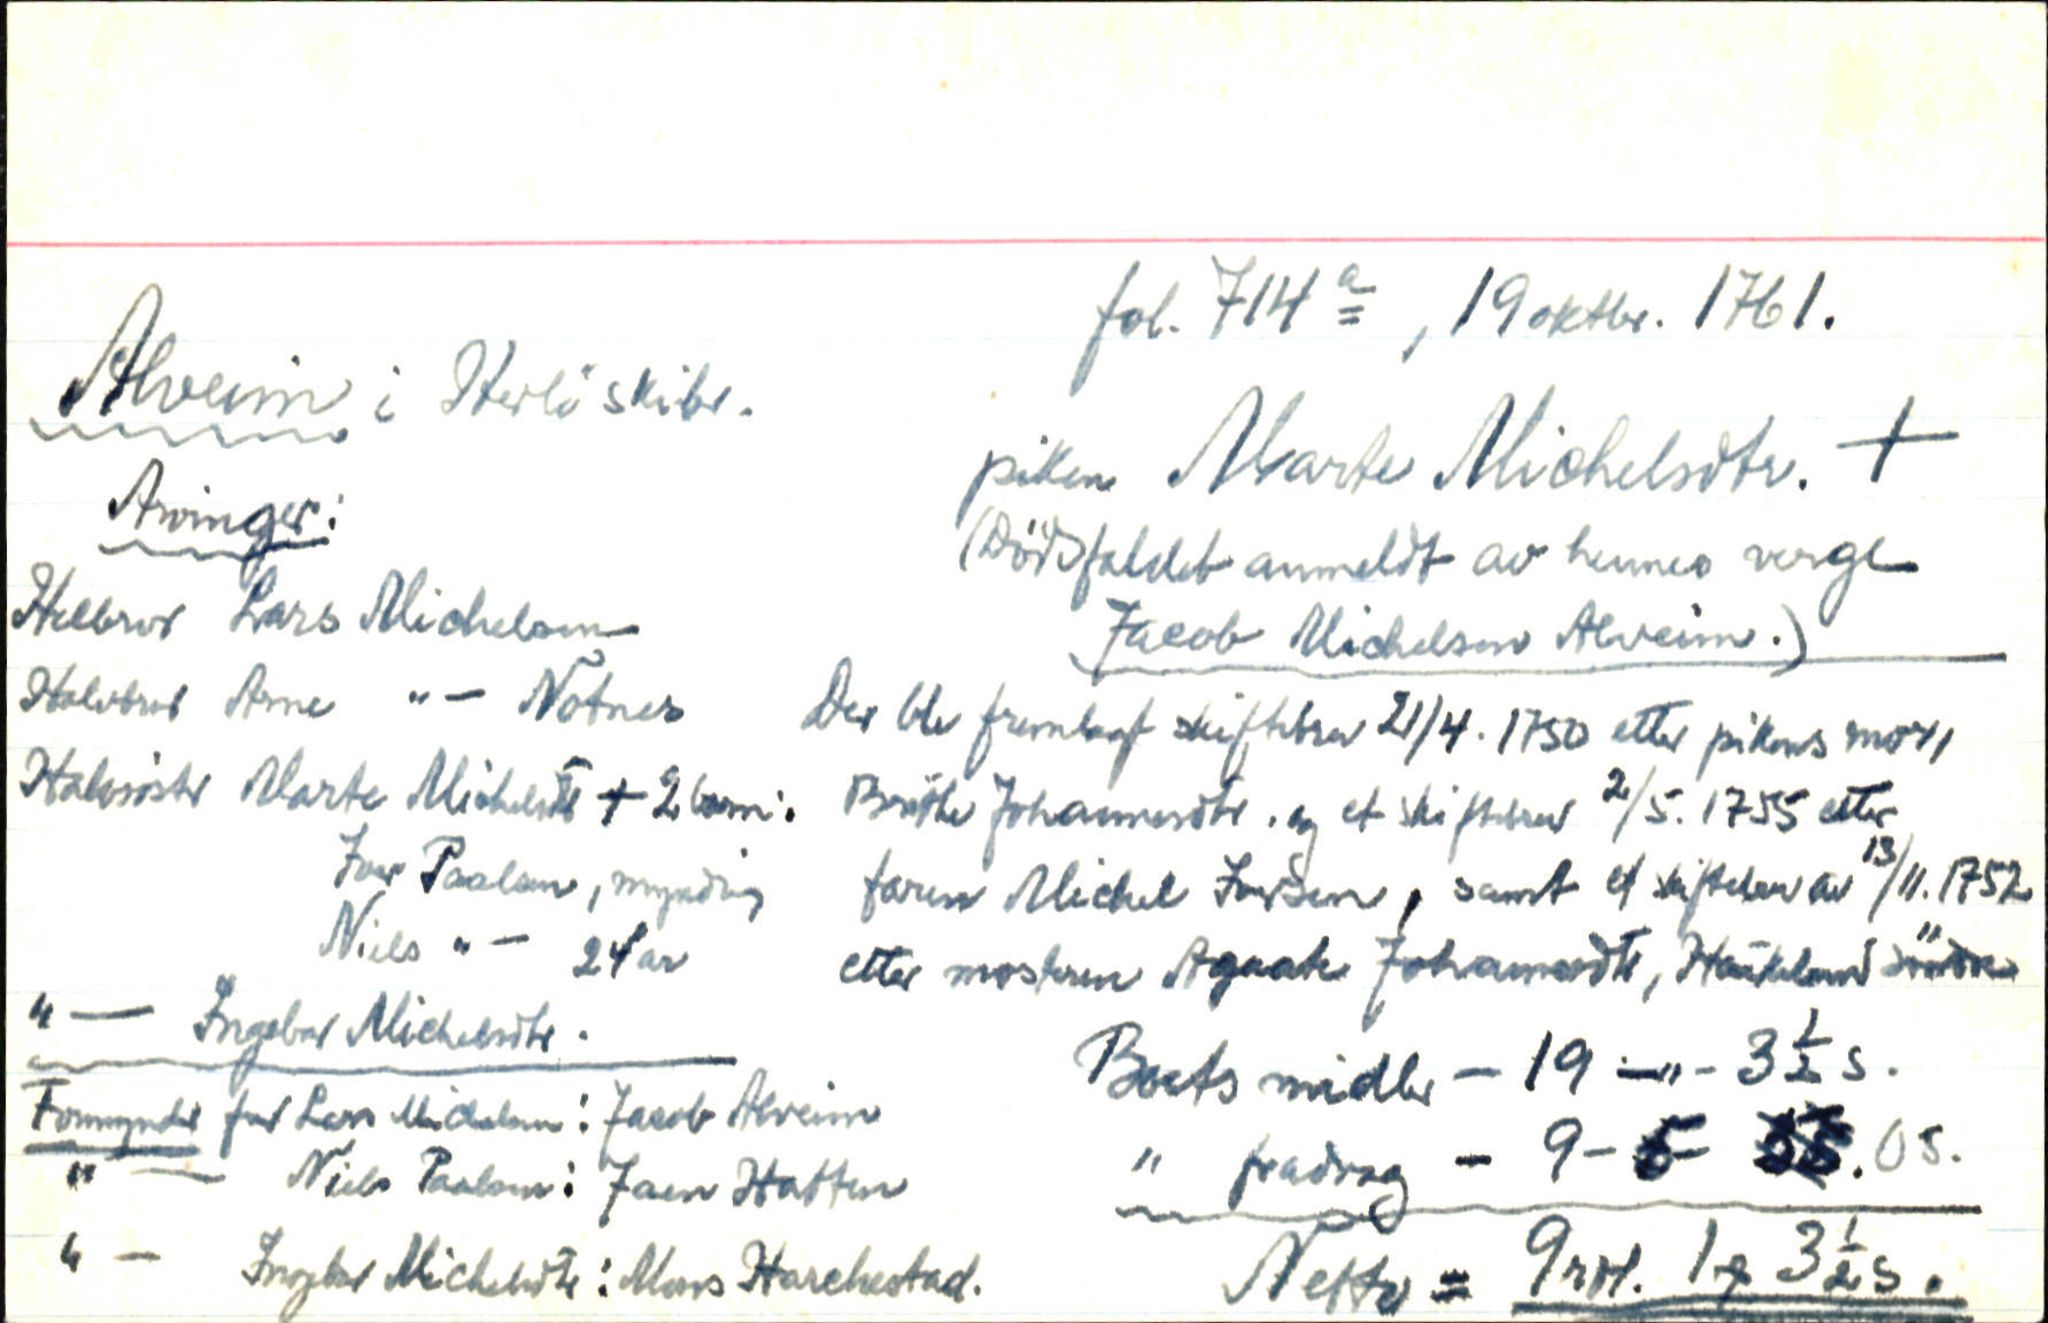 fol. 714 a, 19 oktbr. 1761.
Alveim i Herlö skibr.
piken Marte Michelsdtr. +
(Dödsfaldet anmeldt av hennes verge
Jacob Michelsen Alveim.)
Arvinger:
Helbror Lars Michelsen
Halvbror Arne "— Nötnes
Halvsöstr Marte Michelsdtr + 2 barn:
Ivar Paalsen, myndig
Niels "— 24 år
"— Ingebor Michelsdtr.
Formynder for Lars Michelsen: Jacob Alveim
"— Niels Paalsen: Jaen Hatten
"— Ingebor Michelsdtr: Mons Harkestad.
Der ble fremlagt skiftebrev 21/4. 1750 etter pikens mor,
Brithe Johannesdtr. og et skiftebrev 2/5. 1755 etter
faren Michel Ivarsen, samt et skiftebrev av 13/11. 1752
etter mosteren Agaate Johannesdtr, Haukeland söndre
Boets midler - 19 -"- 3 1/2 s.
" fradrag - 9 - 5 - 0 s.
Netto = 9 rdl. 1 3 1/2 s.